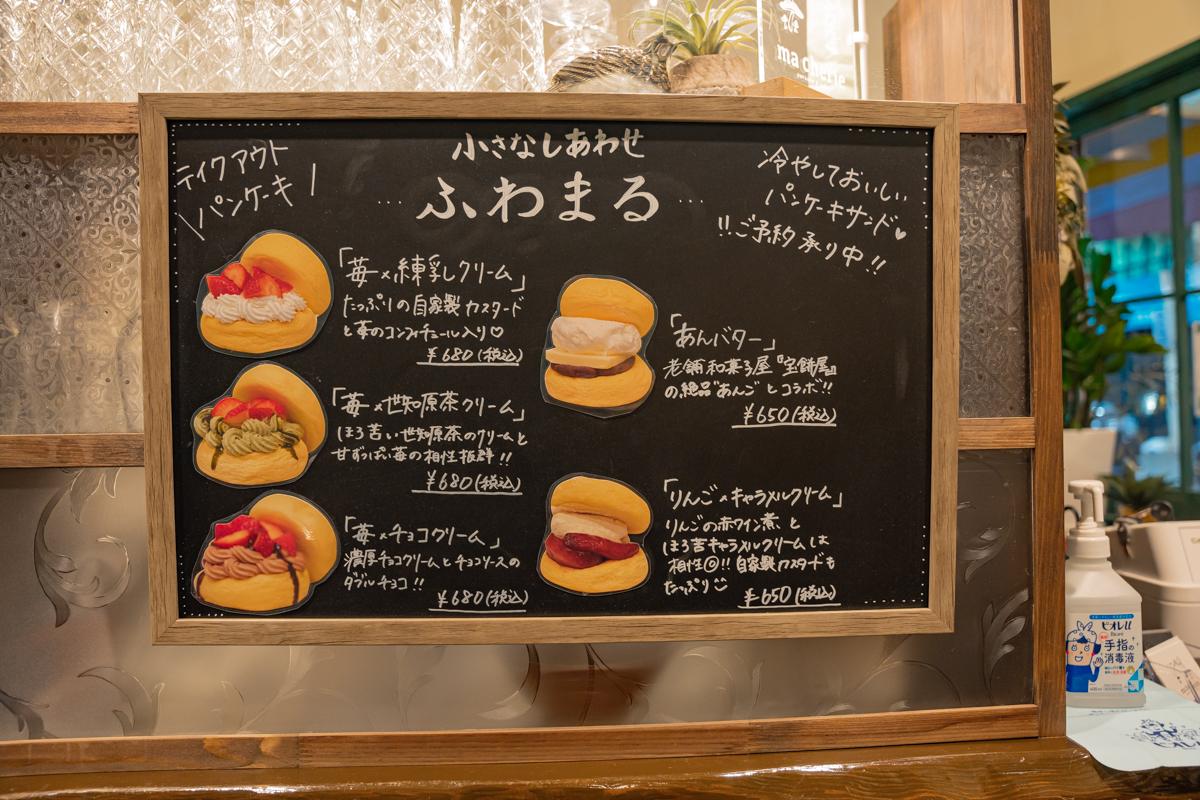 ma chérie
テイクアウト
パンケーキ
小さなしあわせ
ふわまる
冷やしておいしい
パンケーキサンド♥
!!ご予約承り中!!
「苺×練乳クリーム」
たっぷりの自家製カスタード
と苺のコンフィチュール入り♡
¥680(税込)
「苺×世知原茶クリーム」
ほろ苦い世知原茶のクリームと
甘ずっぱい苺の相性抜群!!
¥680(税込)
「苺×チョコクリーム」
濃厚チョコクリームとチョコソースの
ダブルチョコ!!
¥680(税込)
「あんバター」
老舗和菓子屋『宝餅屋』
の絶品"あんこ"とコラボ!!
¥650(税込)
「りんご×キャラメルクリーム」
りんごの赤ワイン煮と
ほろ苦キャラメルクリームは
相性◎!!自家製カスタードも
たっぷり
¥650(税込)
ビオレu
Bioré
手指の
消毒液